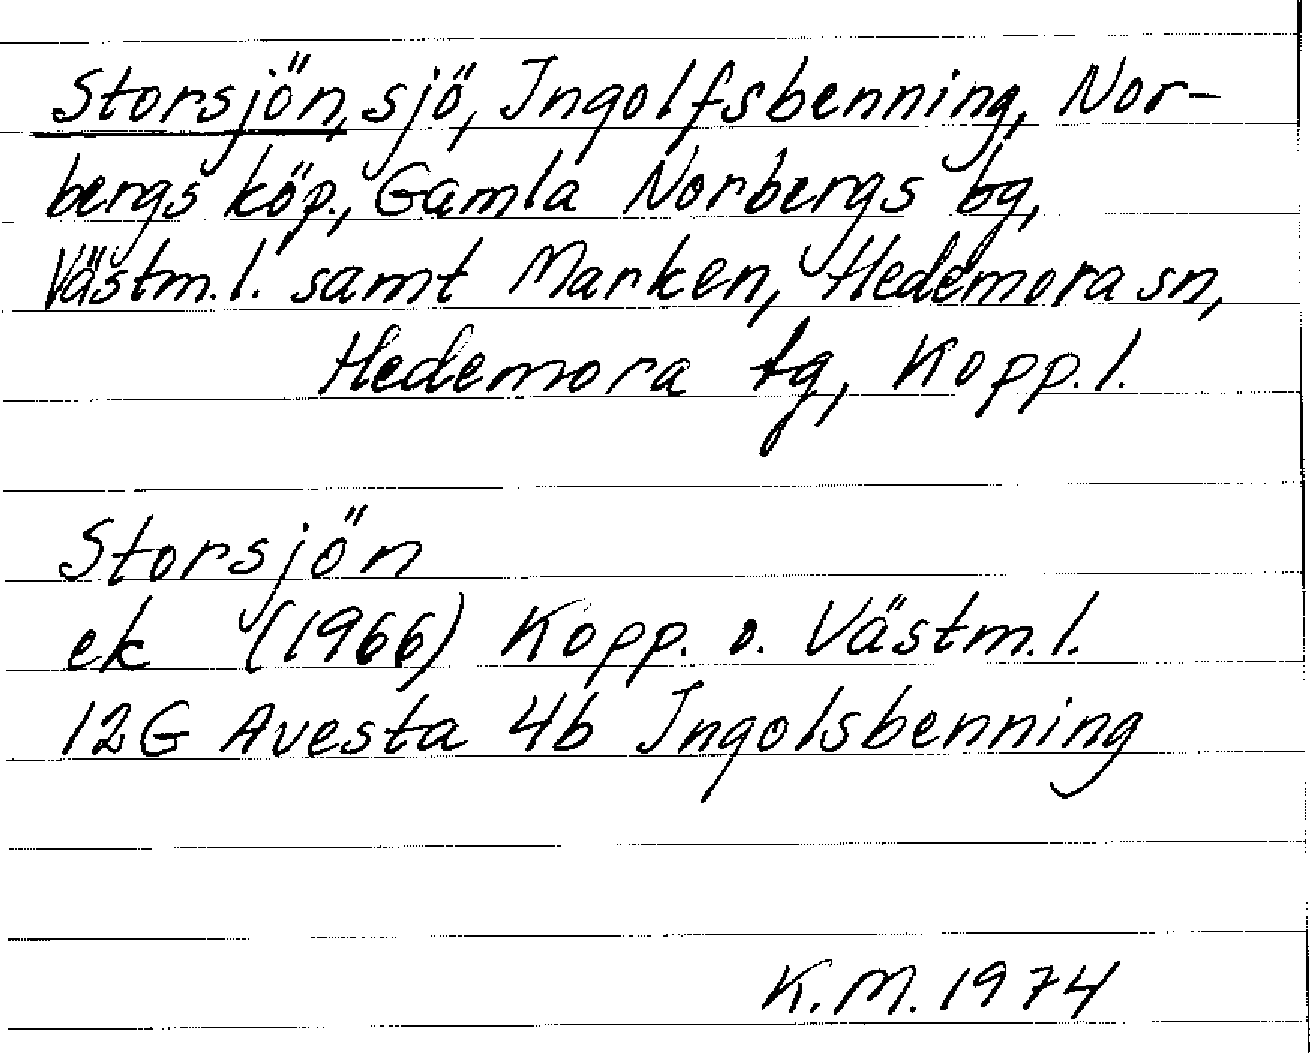 Storsjön, sjö, Ingolfsbenning, Nor-
bergs köp., Gamla Norbergs bg,
Västm.l. samt Marken, Hedemora sn,
Hedemora tg, Kopp.l.
Storsjön
ek (1966) Kopp. o. Västm.l.
12G Avesta 4b Ingolsbenning
K.M. 1974